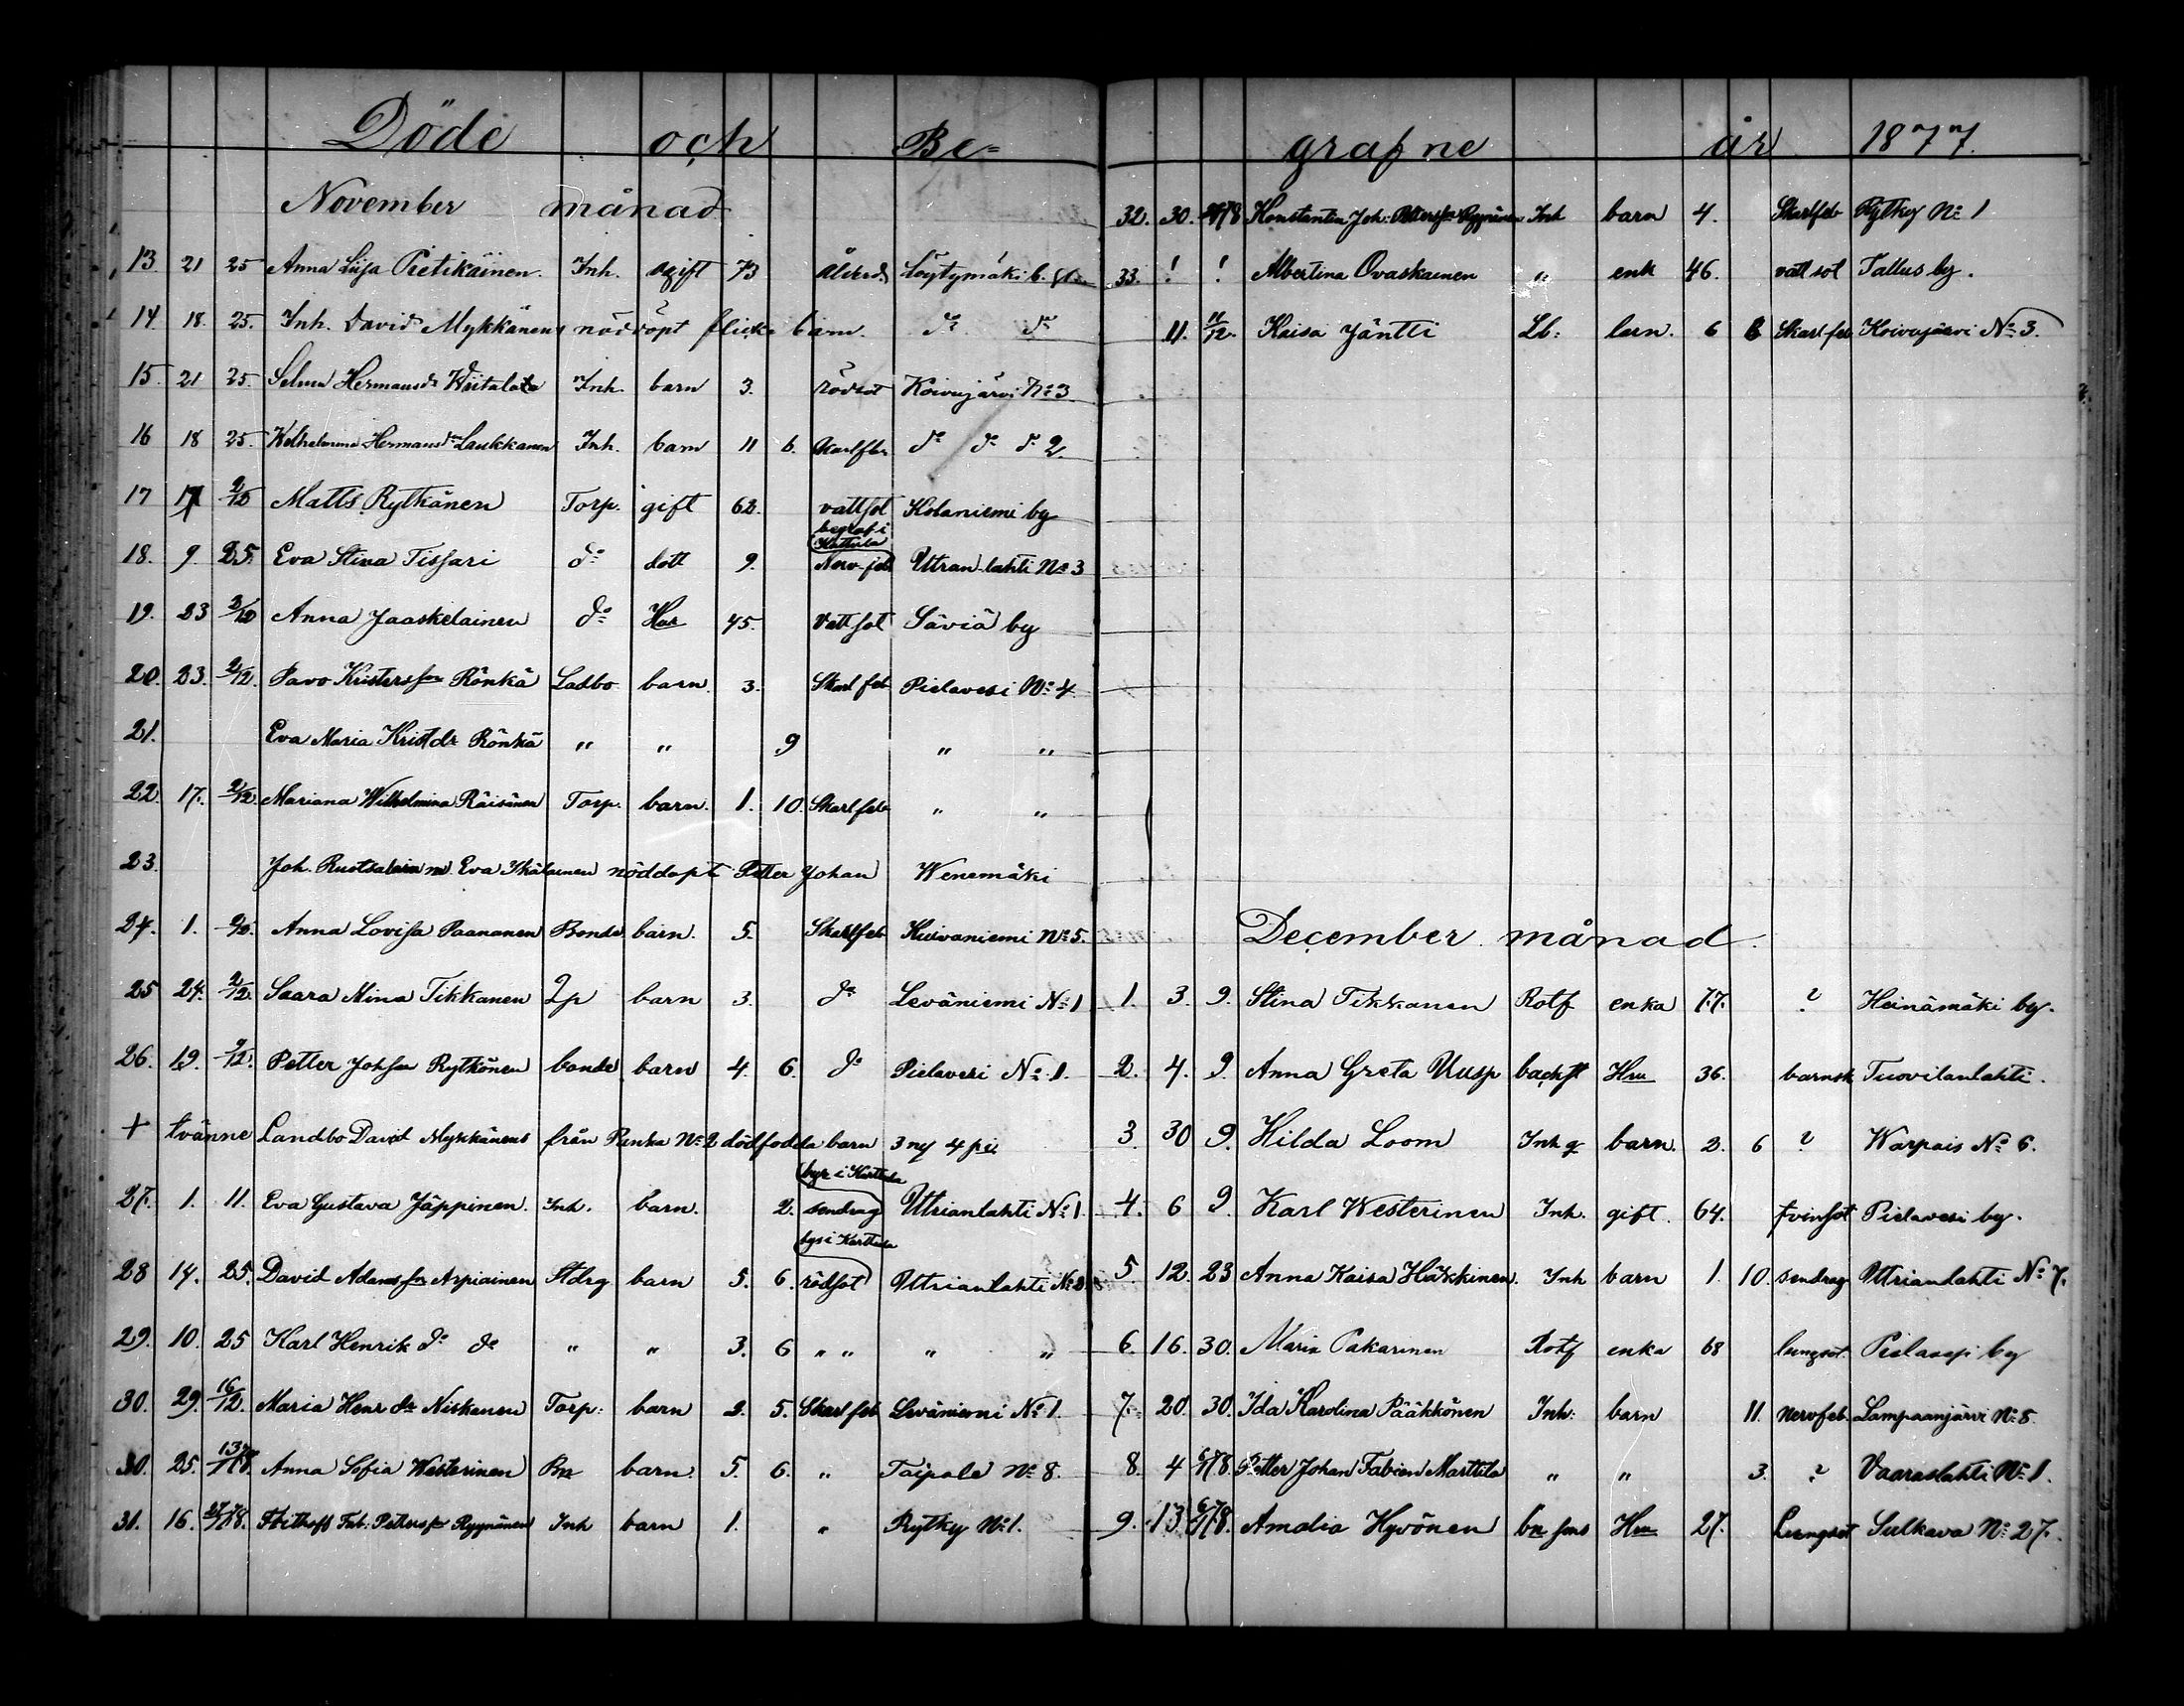 Döde och Be=
November månad
13. 21 25 Anna Liisa Pietikäinen. Inh. ogift 73 Ålderd. Löytymäki b.
14. 18. 25. Inh. David Mykkänens nöddöpt flicke barn. do do
15. 21 25. Selma Hermansdr Wiitala Inh. barn 3. rödsot Koivujärvi No 3
16 18 25. Wilhelmina Hermansdr Laukkanen Inh. barn 11 6. Skarlfbr do do do 2.
17 17 2/12 Matts Rytkänen Torp. gift 62. vattsot Kolaniemi by
18. 9. 25. Eva Stina Tissari do dott 9. begraf i Karttula Nerv-feb Uttrianlahti No 3
19. 23 2/12 Anna Jaaskelainen do Hu 45. Vattsot Säviä by
20. 23. 2/12. Pavo Kristersson Rönkä Ladbo barn. 3. Skarl feb Pielavesi No 4.
21. Eva Maria Kristdr Rönkä " " 9 " "
22. 17. 2/12 Mariana Wilhelmina Räisänen Torp. barn. 1. 10. Skarlfeb " "
23. Joh. Rustsalain m Eva Ikäläinen nöddopt Petter Johan Wenemäki
24. 1. 2/12. Anna Lovisa Paananen Bonde barn. 5. Skarlfeb Kuivaniemi No 5.
25 24. 2/12. Saara Mina Tikkanen Lp barn 3. do Leväniemi No 1
26. 19. 2/12. Petter Johsson Rytkönen bonde barn 4. 6. do Pielavesi No 1.
+ tvänne Landbo David Mykkänens från Panka No 2 dödfodda barn 3 ny 4 pi
27. 1. 11. Eva Gustava Jäppinen. Inh. barn. 2. begr i Karttula sendrag Uttrianlahti No 1.
28 14. 25. David Adamsson Arpiainen Stdrg barn 5. 6. begr i Karttula rödsot Uttrianlahti No 2.
29. 10. 25 Karl Henrik do do " " 3. 6 " " " "
30. 29. 16/12. Maria Henr dr Niskanen Torp: barn 2. 5. Skarl feb Leväniemi No 1.
30. 25. 13/1 78. Anna Sofia Westerinen Bn barn. 5. 6. " Taipale No 8.
31. 16. 1 78. Frithoff Inh: Petterss Ryynänen Inh barn 1. " Rytky No 1.
grafne år 1877.
32. 30. 78 Konstantin Joh: Petterss Ryynänen Inh barn 4. Skarlfeb Rytky No 1
33. ! ! Albertina Ovaskainen " enk 46. vatt sot Tallus by.
11. 11/12. Kaisa Jäntti Lb: barn. 6 6 Skarl feb Koivujärvi No 3.
December månad.
1. 3. 9. Stina Tikkanen Rotf enka 77. ? Heinämäki by.
2. 4. 9. Anna Greta Uusp backst Hu 36. barnsb Tuovilanlahti.
3. 30 9. Hilda Loom Inh g barn. 2. 6 ? Warpais No 6.
4. 6 9. Karl Westerinen Inh. gift. 64. tvinsot Pielavesi by.
5. 12. 23 Anna Kaisa Häkkinen. Inh barn 1. 10. sendrag Uttrianlahti No 7.
6. 16. 30. Maria Pakarinen Rotf enka 68 lungsot Pielavesi by
7. 20. 30. Ida Karolina Pääkkönen Inh: barn 11. nervfeb. Lampaanjärvi No 8.
8. 4 6/1 78. Petter Johan Fabian Marttila " " 3. ? Vaaraslahti No 1.
9. 13. 6/1 78. Amalia Hyvönen bn sons Hu 27. Lungsot Sulkava No 27.